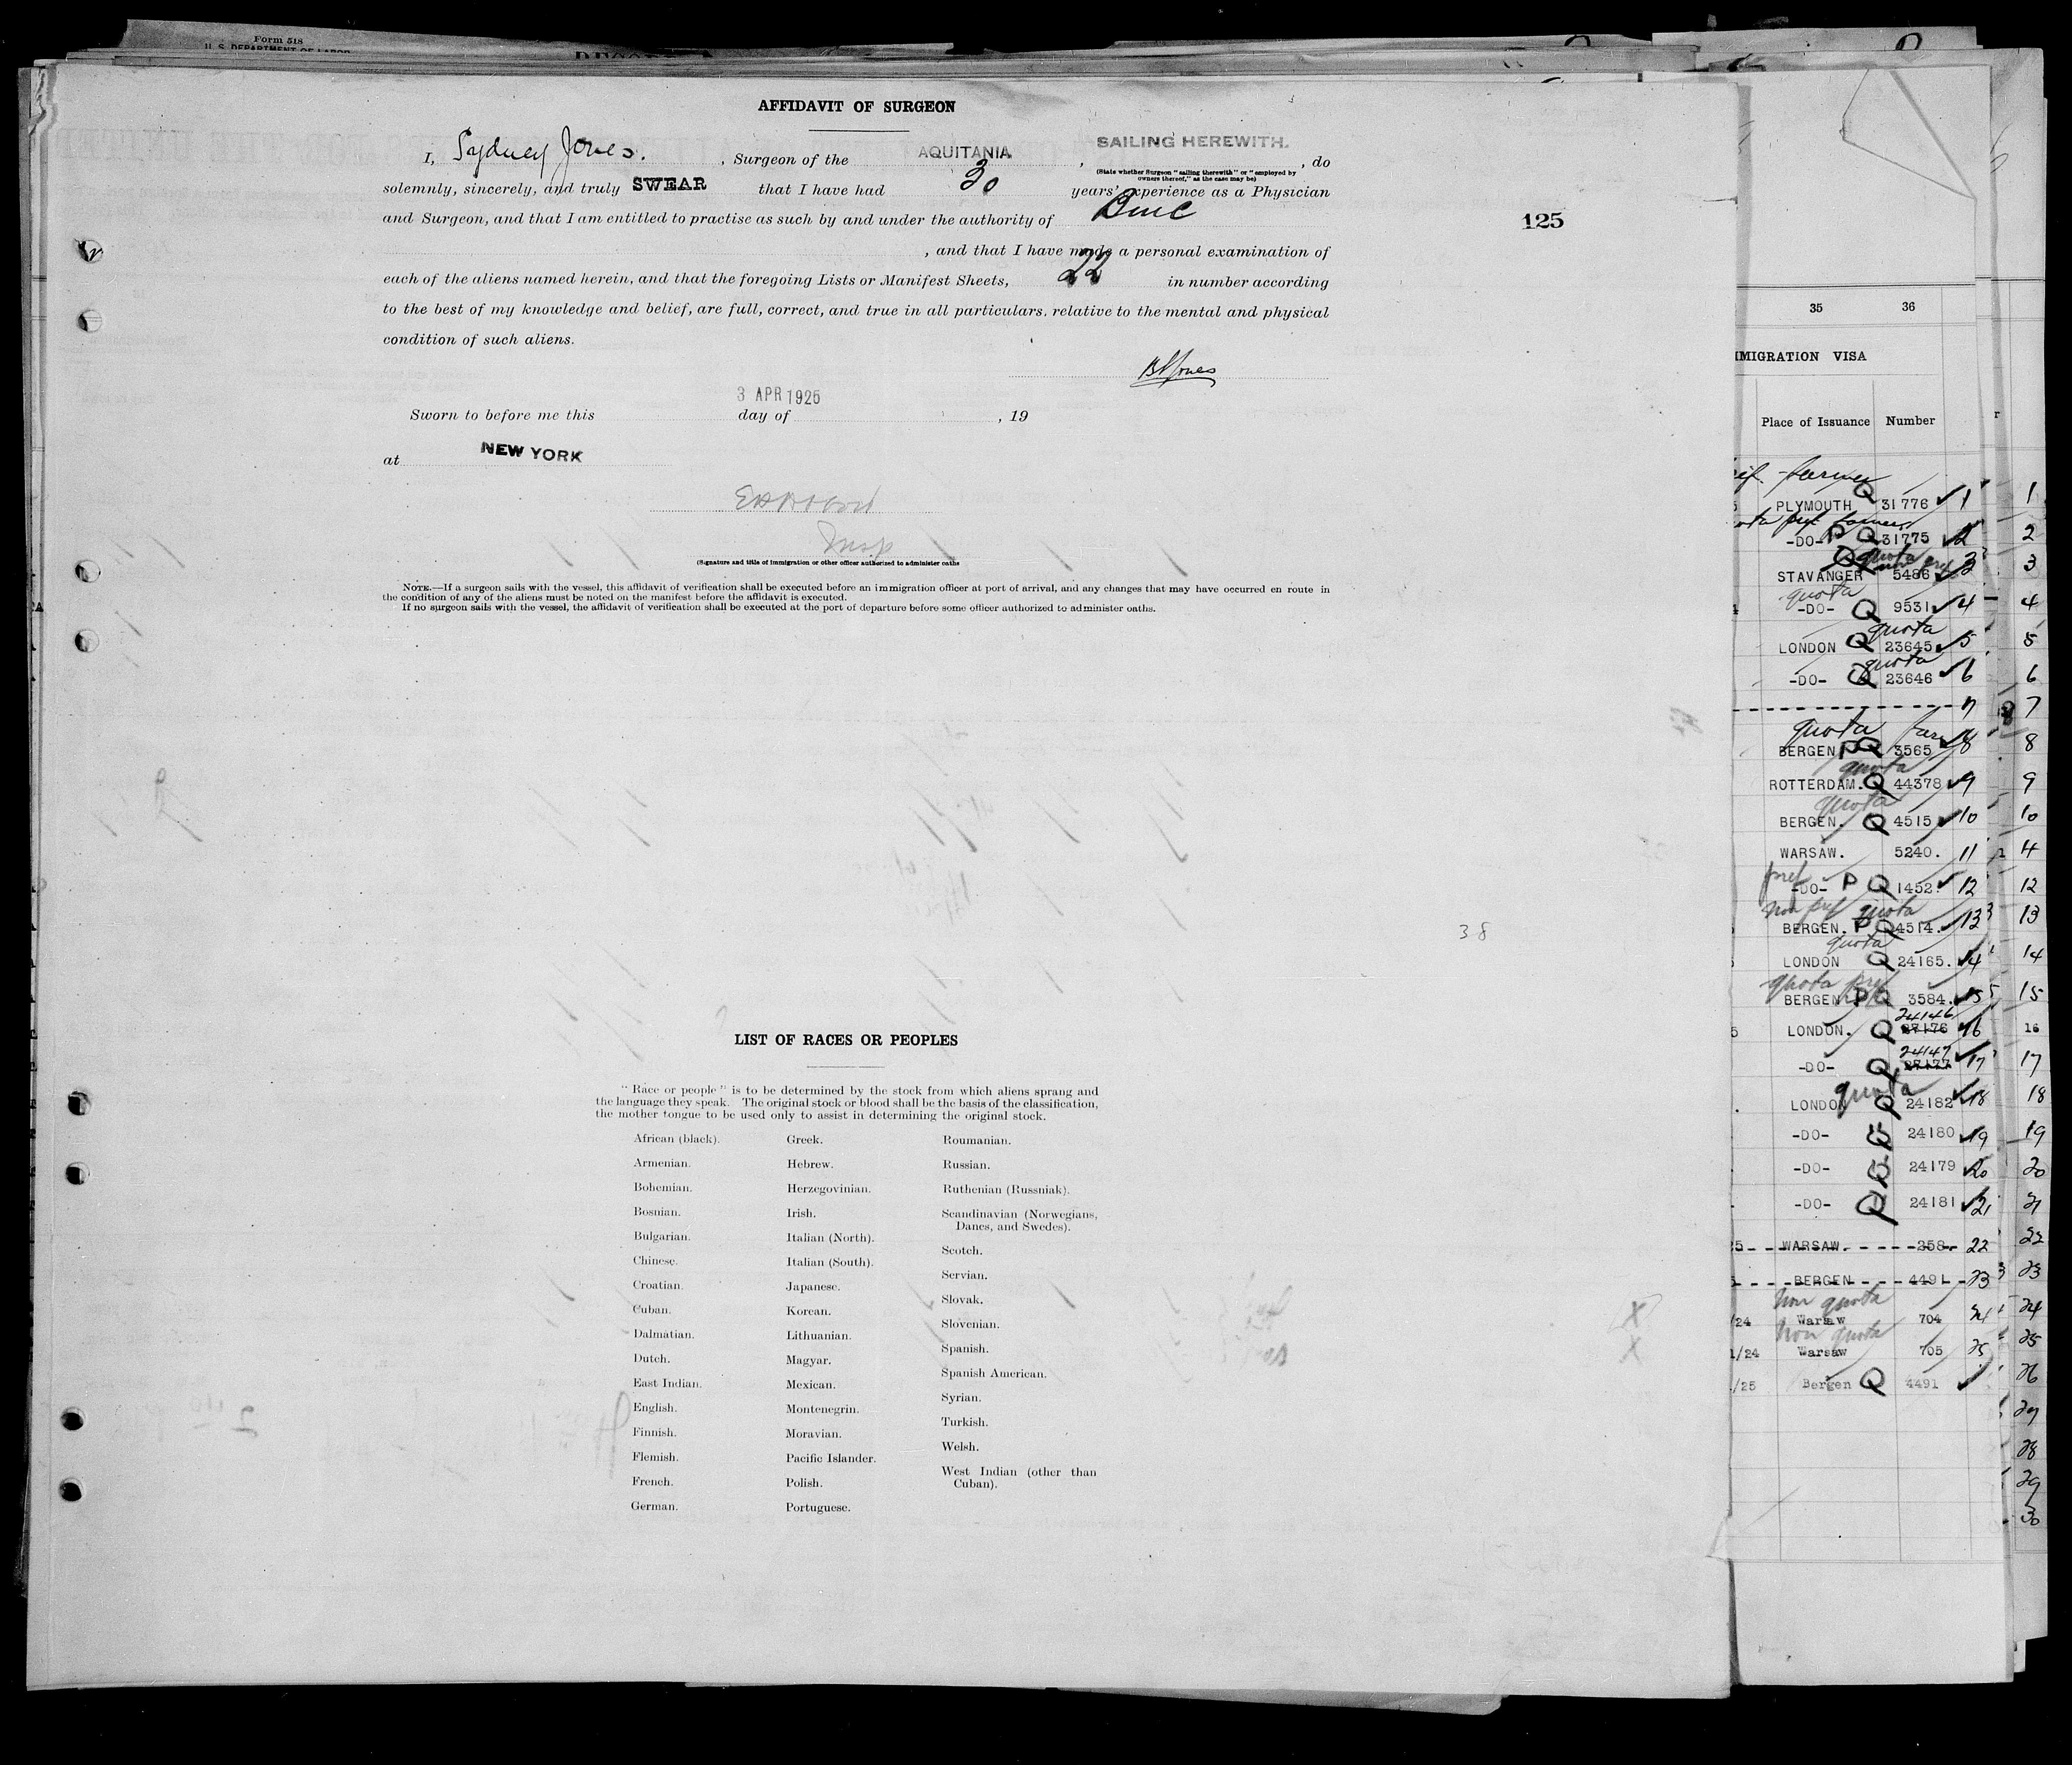 Form 518
U. S. DEPARTMENT OF LABOR
AFFIDAVIT OF SURGEON
I, Sydney Jones. , Surgeon of the AQUITANIA , SAILING HEREWITH. , do
(State whether Surgeon "sailing therewith" or "employed by owners thereof," as the case may be)
solemnly, sincerely, and truly SWEAR that I have had 30 years' experience as a Physician
and Surgeon, and that I am entitled to practise as such by and under the authority of BMC
, and that I have made a personal examination of
each of the aliens named herein, and that the foregoing Lists or Manifest Sheets, 22 in number according
to the best of my knowledge and belief, are full, correct, and true in all particulars, relative to the mental and physical
condition of such aliens.
125
Jones
Sworn to before me this 3 APR 1925 day of , 19
at NEW YORK
Insp
(Signature and title of immigration or other officer authorized to administer oaths
NOTE.—If a surgeon sails with the vessel, this affidavit of verification shall be executed before an immigration officer at port of arrival, and any changes that may have occurred en route in
the condition of any of the aliens must be noted on the manifest before the affidavit is executed.
If no surgeon sails with the vessel, the affidavit of verification shall be executed at the port of departure before some officer authorized to administer oaths.
38
LIST OF RACES OR PEOPLES
"Race or people" is to be determined by the stock from which aliens sprang and
the language they speak. The original stock or blood shall be the basis of the classification,
the mother tongue to be used only to assist in determining the original stock.
African (black).
Armenian.
Bohemian.
Bosnian.
Bulgarian.
Chinese.
Croatian.
Cuban.
Dalmatian.
Dutch.
East Indian.
English.
Finnish.
Flemish.
French.
German.
Greek.
Hebrew.
Herzegovinian.
Irish.
Italian (North).
Italian (South).
Japanese.
Korean.
Lithuanian.
Magyar.
Mexican.
Montenegrin.
Moravian.
Pacific Islander.
Polish.
Portuguese.
Roumanian.
Russian.
Ruthenian (Russniak).
Scandinavian (Norwegians,
Danes, and Swedes).
Scotch.
Servian.
Slovak.
Slovenian.
Spanish.
Spanish American.
Syrian.
Turkish.
Welsh.
West Indian (other than
Cuban).
X
X
35 36
IMMIGRATION VISA
Place of Issuance Number
farmer
PLYMOUTH Q 31776 1 1
-DO- P Q 31775 2 2
quota
STAVANGER 5486 3 3
quota
-DO- Q 9531 4 4
quota
LONDON Q 23645 5 5
quota
-DO- Q 23646 6 6
7 7
quota
BERGEN PQ 3565 8 8
quota
ROTTERDAM. Q 44378 9 9
quota
BERGEN. Q 4515 10 10
WARSAW. 5240. 11 11
pref
-DO- P Q 1452. 12 12
non pref quota
BERGEN. P Q 4514. 13 13
quota
LONDON Q 24165. 14 14
quota pref
BERGEN PQ 3584. 15 15
24146
LONDON. Q 27176 16 16
24147
-DO- Q 27177 17 17
quota
LONDON Q 24182 18 18
-DO- Q 24180 19 19
-DO- Q 24179 20 20
-DO- Q 24181 21 21
WARSAW. 258. 22 22
BERGEN 4491 23 23
non quota
/24 Warsaw 704 24 24
non quota
1/24 Warsaw 705 25 25
/25 Bergen Q 4491 26
27
28
29
30